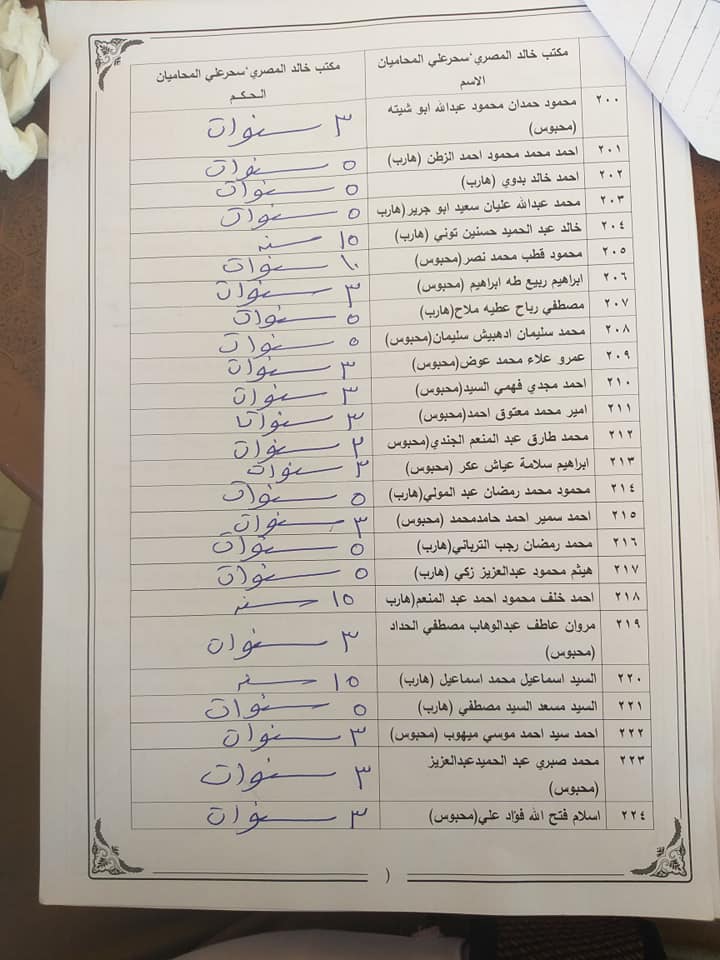 مكتب خالد المصري،سحرعلي المحاميان
الاسم
مكتب خالد المصري،سحرعلي المحاميان
الحكم
٢٠٠ محمود حمدان محمود عبدالله ابو شيته
(محبوس) ٣ سنوات
٢٠١ احمد محمد محمود احمد الزطن (هارب) ٥ سنوات
٢٠٢ احمد خالد بدوي (هارب) ٥ سنوات
٢٠٣ محمد عبدالله عليان سعيد ابو جرير(هارب ٥ سنوات
٢٠٤ خالد عبد الحميد حسنين توني (هارب) ١٥ سنه
٢٠٥ محمود قطب محمد نصر(محبوس) ١٠ سنوات
٢٠٦ ابراهيم ربيع طه ابراهيم (محبوس) ٣ سنوات
٢٠٧ مصطفي رباح عطيه ملاح(هارب) ٥ سنوات
٢٠٨ محمد سليمان ادهبيش سليمان(محبوس) ٥ سنوات
٢٠٩ عمرو علاء محمد عوض(محبوس) ٣ سنوات
٢١٠ احمد مجدي فهمي السيد(محبوس) ٣ سنوات
٢١١ امير محمد معتوق احمد(محبوس) ٣ سنوات
٢١٢ محمد طارق عبد المنعم الجندي(محبوس سنوات
٢١٣ ابراهيم سلامة عياش عكر (محبوس) ٣ سنوات
٢١٤ محمود محمد رمضان عبد المولي(هارب) ٥ سنوات
٢١٥ احمد سمير احمد حامدمحمد (محبوس) ٣ سنوات
٢١٦ محمد رمضان رجب الترباني(هارب) ٥ سنوات
٢١٧ هيثم محمود عبدالعزيز زكي (هارب) ٥ سنوات
٢١٨ احمد خلف محمود احمد عبد المنعم(هارب ١٥ سنه
٢١٩ مروان عاطف عبدالوهاب مصطفي الحداد
(محبوس) ٣ سنوات
٢٢٠ السيد اسماعيل محمد اسماعيل (هارب) ١٥ سنه
٢٢١ السيد مسعد السيد مصطفي (هارب) ٥ سنوات
٢٢٢ احمد سيد احمد موسي ميهوب (محبوس) ٣ سنوات
٢٢٣ محمد صبري عبد الحميدعبدالعزيز
(محبوس) ٣ سنوات
٢٢٤ اسلام فتح الله فؤاد علي(محبوس) ٣ سنوات